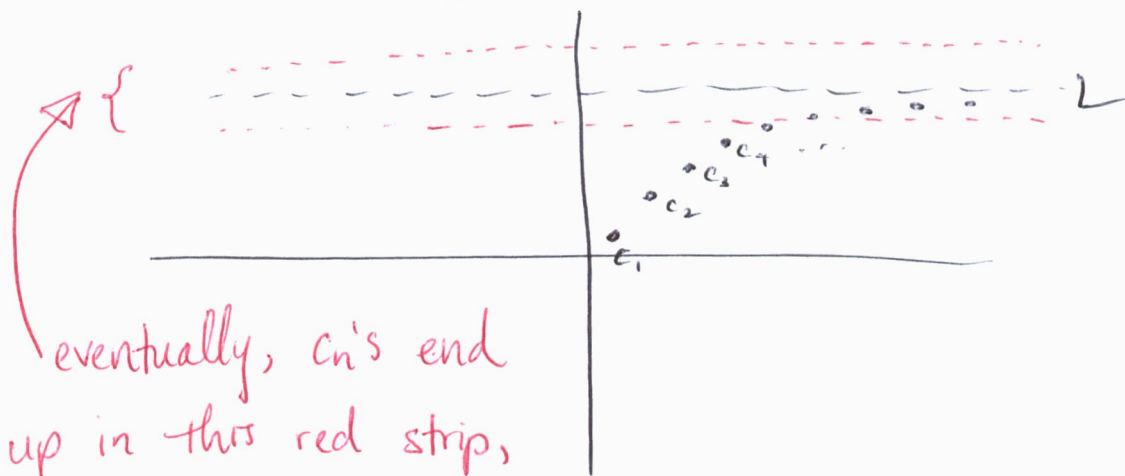 {
L
c₄ ...
c₃
c₂
c₁
eventually, cₙ's end
up in this red strip,